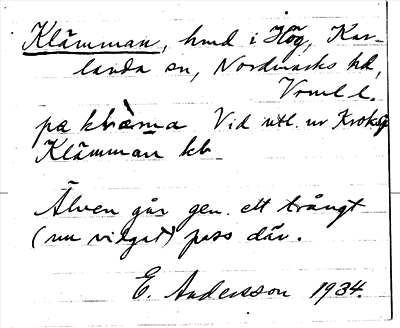 Klämman, hmd i Hög, Kar-
landa sn, Nordmarks hd,
Vrml l.
pæ klæma Vid utl. ur Kroksjö
Klämman kb
Älven går gen. ett trångt
(nu vidgat) pass där.
E. Andersson 1934.